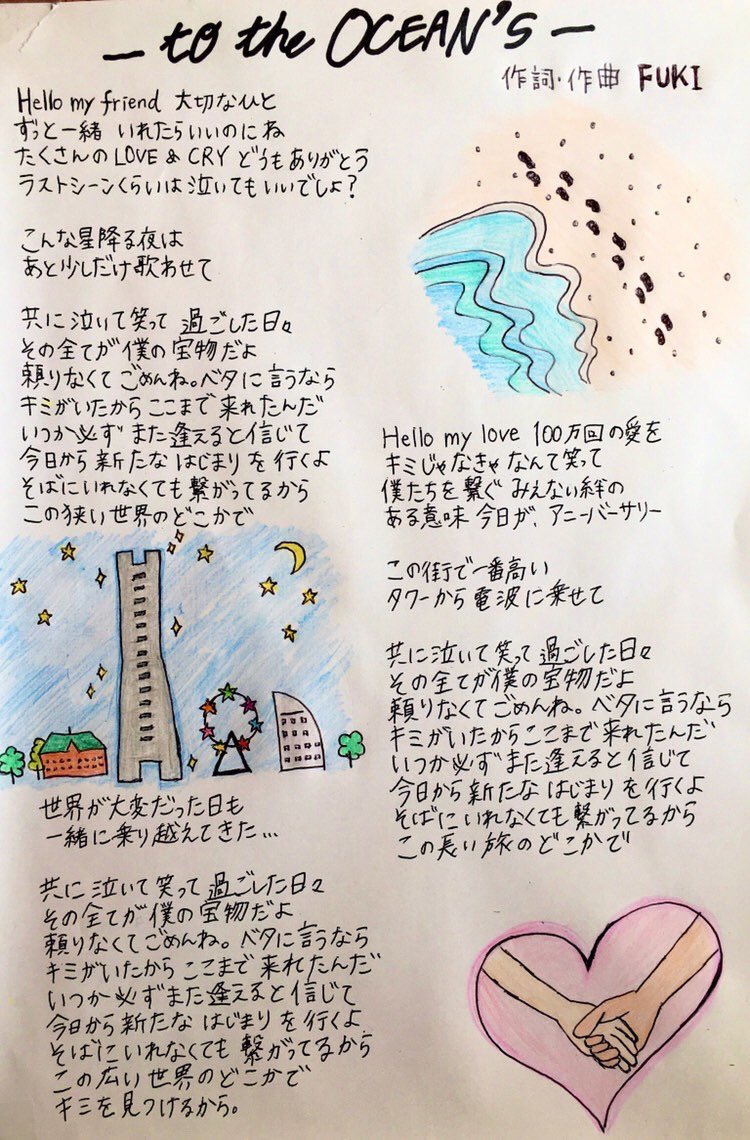 — to the OCEAN's —
作詞・作曲 FUKI
Hello my friend 大切なひと
ずっと一緒 いれたらいいのにね
たくさんの LOVE & CRY どうもありがとう
ラストシーンくらいは泣いてもいいでしょ?
こんな星降る夜は
あと少しだけ歌わせて
共に泣いて笑って 過ごした日々
その全てが僕の宝物だよ
頼りなくてごめんね。ベタに言うなら
キミがいたからここまで来れたんだ
いつか必ず また逢えると信じて
今日から新たな はじまりを行くよ
そばにいれなくても繋がってるから
この狭い世界のどこかで
Hello my love 100万回の愛を
キミじゃなきゃなんて笑って
僕たちを繋ぐ みえない絆の
ある意味 今日が、アニーバーサリー
この街で一番高い
タワーから電波に乗せて
共に泣いて笑って 過ごした日々
その全てが僕の宝物だよ
頼りなくてごめんね。ベタに言うなら
キミがいたからここまで来れたんだ
いつか必ずまた逢えると信じて
今日から新たな はじまりを行くよ
そばにいれなくても繋がってるから
この長い旅のどこかで
世界が大変だった日も
一緒に乗り越えてきた…
共に泣いて笑って 過ごした日々
その全てが僕の宝物だよ
頼りなくてごめんね。ベタに言うなら
キミがいたから ここまで来れたんだ
いつか必ずまた逢えると信じて
今日から新たな はじまりを行くよ
そばにいれなくても 繋がってるから
この広い世界のどこかで
キミを見つけるから。